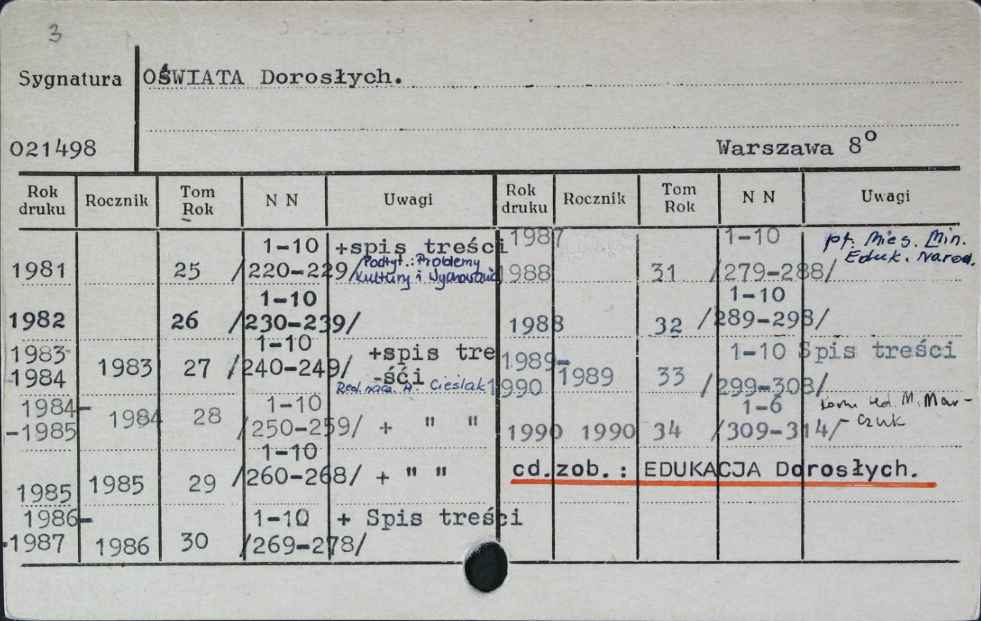 3
Sygnatura OŚWIATA Dorosłych.
021498 Warszawa 8°
Rok druku Rocznik Tom Rok N N Uwagi
1981 25 1-10 /220-229/ +spis treści
Podtyt.: Problemy
Kultury i Wychowania
1982 26 1-10 /230-239/
1983-1984 1983 27 1-10 /240-249/ +spis tre-ści
Red. nacz. A. Cieślak
1984--1985 1984 28 1-10 /250-259/ + " "
1985 1985 29 1-10 /260-268/ + " "
1986--1987 1986 30 1-10 /269-278/ + Spis treści
Rok druku Rocznik Tom Rok N N Uwagi
1987 1988 31 1-10 /279-288/ pt. Mies. Min.
Eduk. Narod.
1988 32 1-10 /289-298/
1989-1990 1989 33 1-10 /299-308/ Spis treści
1990 1990 34 1-6 /309-314/ red. M. Mar-
czuk
cd.zob.: EDUKACJA Dorosłych.